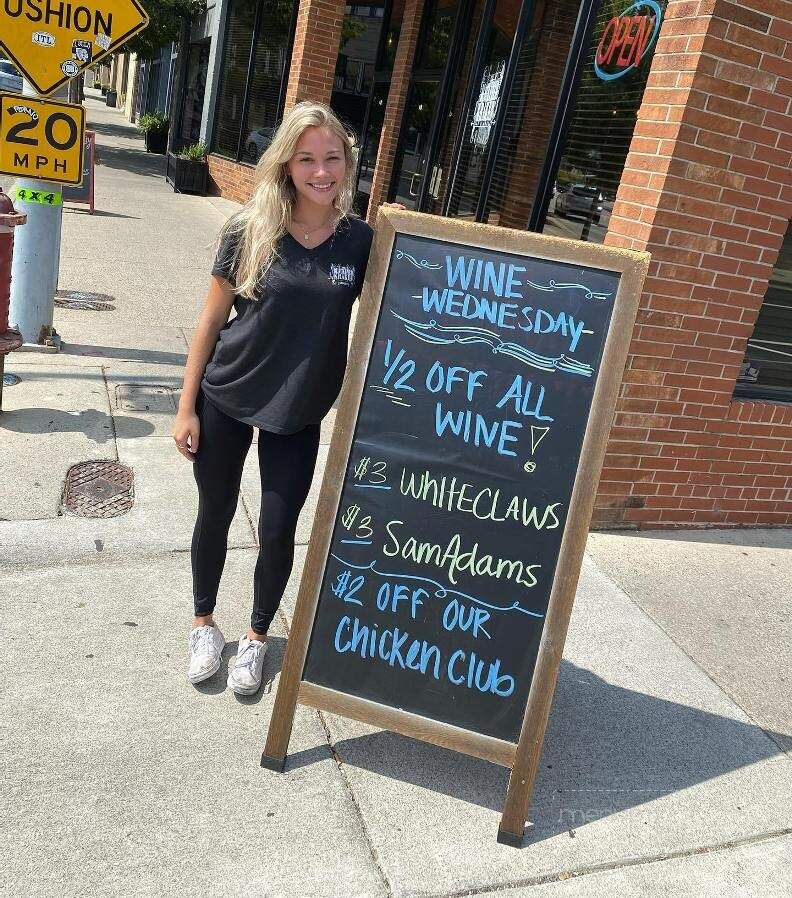 USHION
ITL
20
MPH
4x4
OPEN
WINE
WEDNESDAY
1/2 OFF ALL
WINE!
$3 WHITECLAWS
$3 SamAdams
$2 OFF OUR
Chicken Club